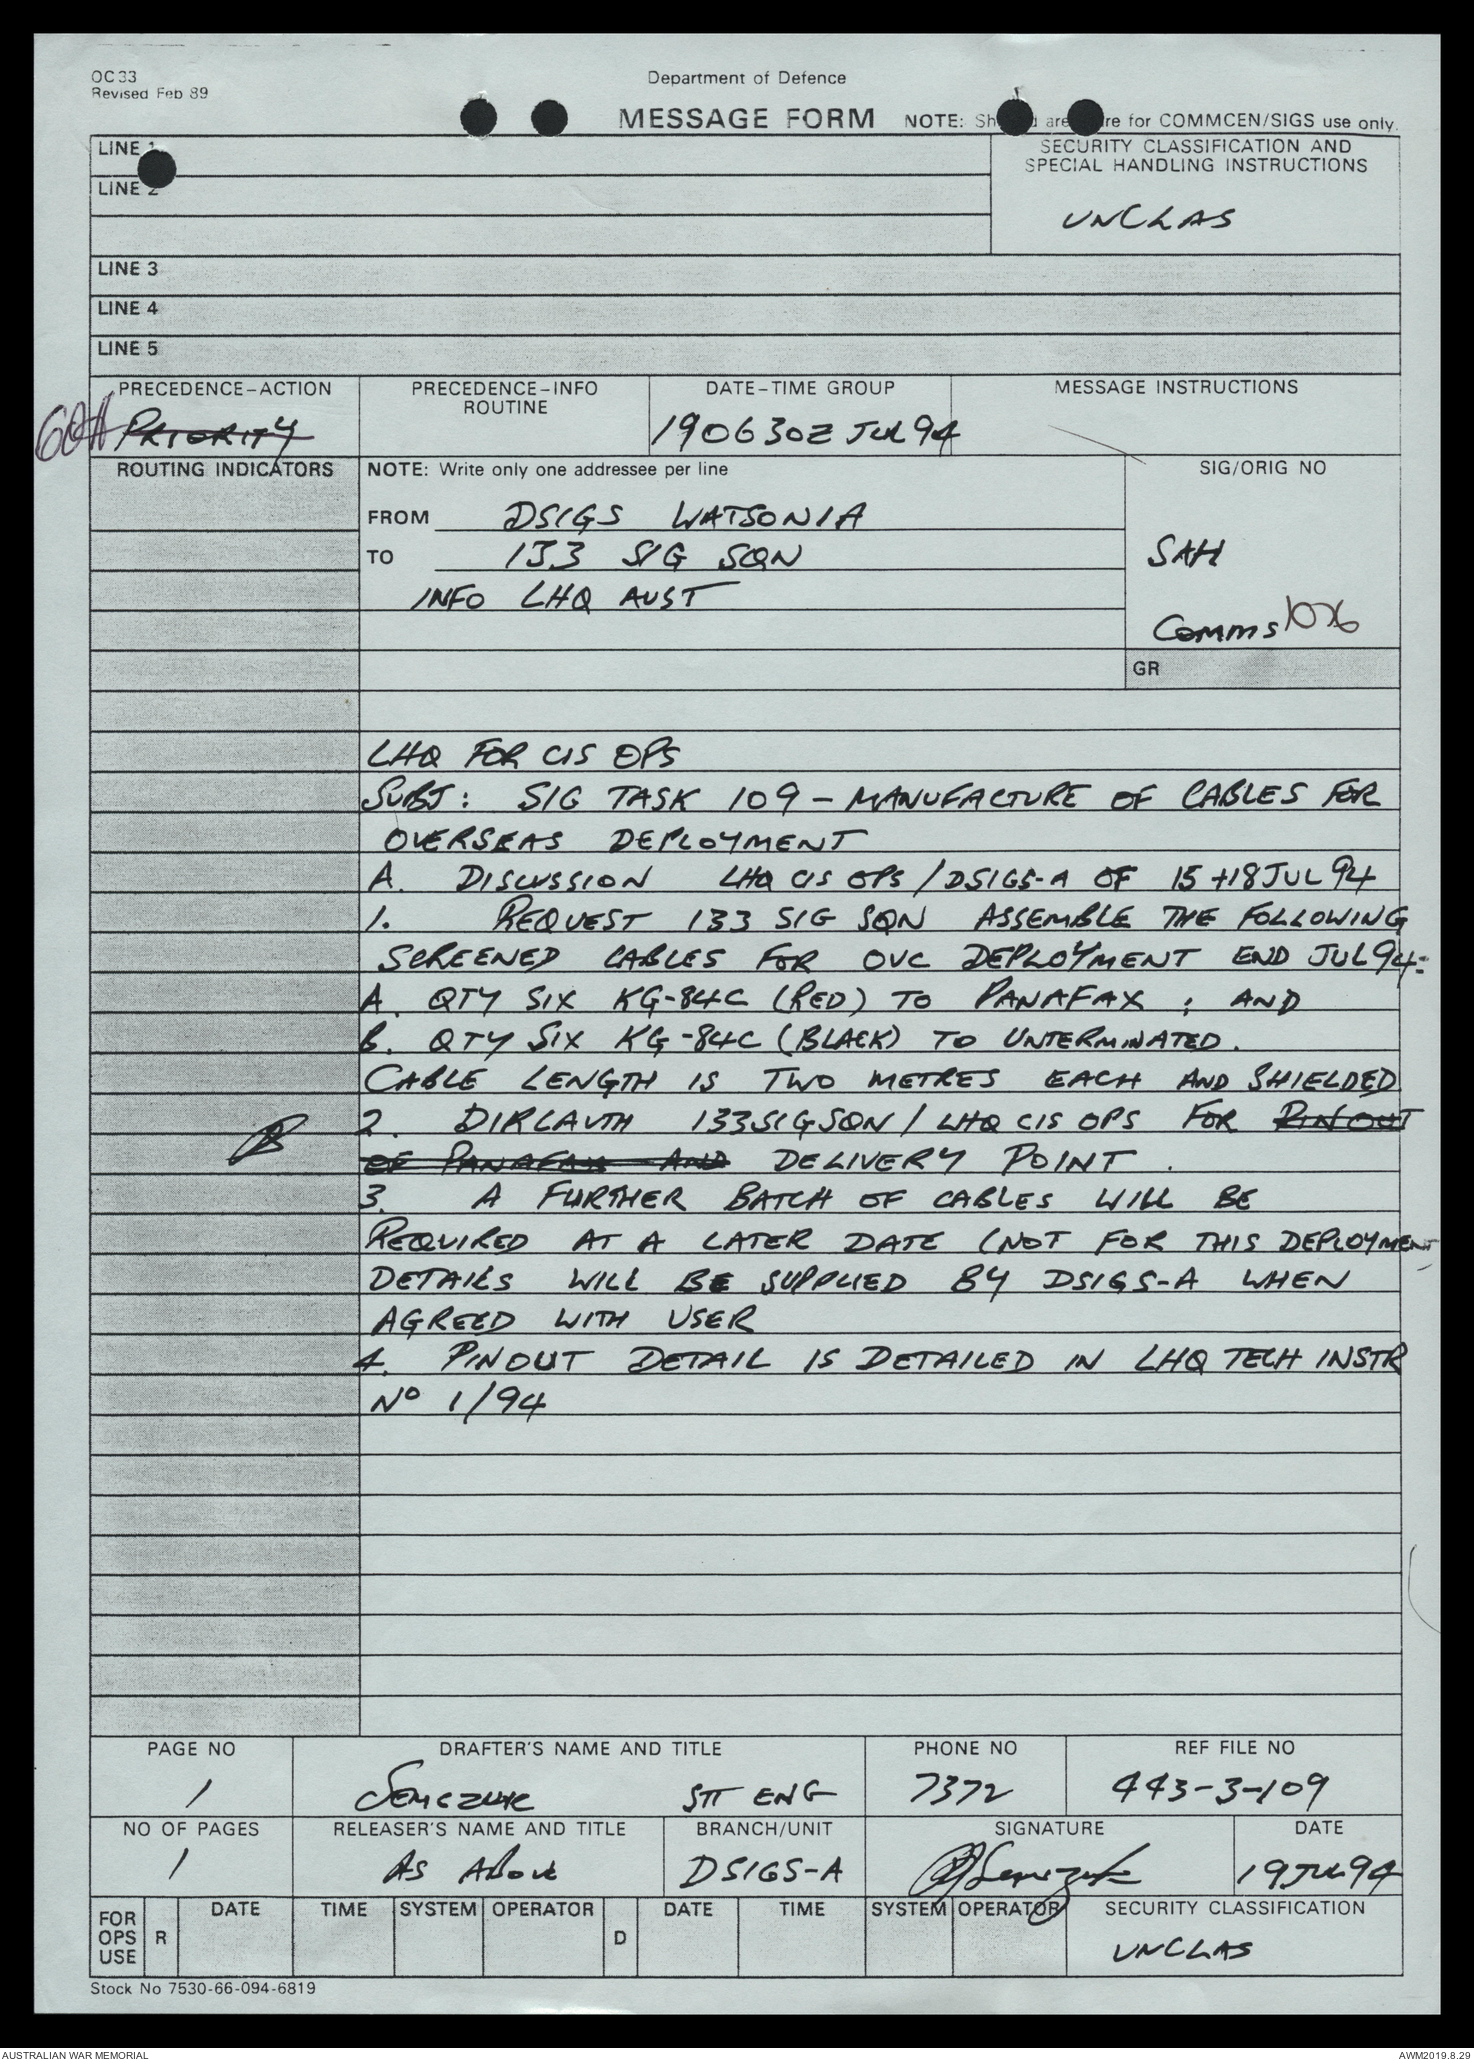 OC33
Revised Feb 89
Department of Defence
MESSAGE FORM
NOTE: Sh are re for COMMCEN/SIGS use only.
LINE 1
LINE 2
SECURITY CLASSIFICATION AND
SPECIAL HANDLING INSTRUCTIONS
UNCLAS
LINE 3
LINE 4
LINE 5
PRECEDENCE-ACTION
PRIORITY
PRECEDENCE-INFO
ROUTINE
DATE-TIME GROUP
190630Z JUL 94
MESSAGE INSTRUCTIONS
ROUTING INDICATORS
NOTE: Write only one addressee per line
SIG/ORIG NO
FROM DSIGS WATSONIA
TO 133 SIG SQN
SAH
INFO LHQ AUST
Comms 1076
GR
LHQ FOR CIS OPS
SUBJ: SIG TASK 109 - MANUFACTURE OF CABLES FOR
OVERSEAS DEPLOYMENT
A. DISCUSSION LHQ CIS OPS/DSIGS-A OF 15+18 JUL 94
1. REQUEST 133 SIG SQN ASSEMBLE THE FOLLOWING
SCREENED CABLES FOR OVC DEPLOYMENT END JUL 94:
A. QTY SIX KG-84C (RED) TO PANAFAX ; AND
B. QTY SIX KG-84C (BLACK) TO UNTERMINATED.
CABLE LENGTH IS TWO METRES EACH AND SHIELDED
2. DIRLAUTH 133SIGSQN/LHQ CIS OPS FOR PINOUT
OF PANAFAX AND DELIVERY POINT.
3. A FURTHER BATCH OF CABLES WILL BE
REQUIRED AT A LATER DATE (NOT FOR THIS DEPLOYMENT
DETAILS WILL BE SUPPLIED BY DSIGS-A WHEN
AGREED WITH USER
4. PINOUT DETAIL IS DETAILED IN LHQ TECH INSTR
No 1/94
PAGE NO
1
DRAFTER'S NAME AND TITLE
SEMCZUK STT ENG
PHONE NO
7372
REF FILE NO
443-3-109
NO OF PAGES
1
RELEASER'S NAME AND TITLE
AS ABOVE
BRANCH/UNIT
DSIGS-A
SIGNATURE
DATE
19 JUL 94
FOR OPS USE
R
DATE
TIME
SYSTEM
OPERATOR
D
DATE
TIME
SYSTEM
OPERATOR
SECURITY CLASSIFICATION
UNCLAS
Stock No 7530-66-094-6819
AUSTRALIAN WAR MEMORIAL
AWM2019.8.29